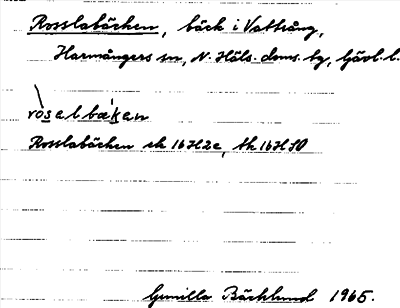 Rosslabäcken, bäck i Vattrång,
Harmångers sn, N. Häls. doms. hg, Gävl. l.
ròsalbækan
Rosslabäcken ek 16H2e, tk 16H S0
Gunilla Bäcklund 1965.